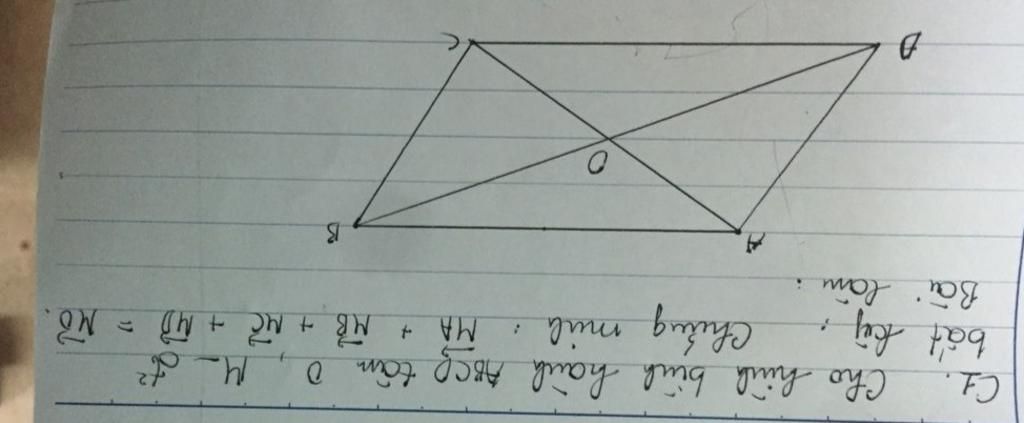 C1. Cho hình bình hành ABCD tâm O, M - đt²
bất kỳ. Chứng minh: MA + MB + MC + MD = MO.
Bài làm:
A
B
O
D
C